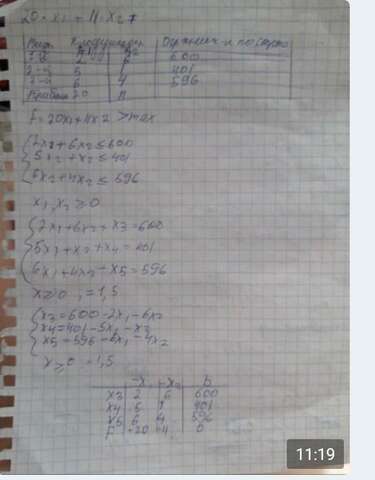 20·x₁ + 11·x₂
1-й 2 6 600
2-й 5 401
3-й 6 4 596
20 11
f = 20x₁+11x2 > max
2x1+6x2 ≤ 600
5x₂ + x₂ ≤ 401
6x₂+4x₂ ≤ 596
x₁, x₂ ≥ 0
2x₁+6x₂+x3=600
5x₁+x₂+x4=401
6x₁+4x2+x5=596
x≥0 =1,5
x3=600-2x₁-6x₂
x4=401-5x₁-x₂
x5=596-6x₁-4x₂
x≥0 -1,5
-x -x₂ b
x3 2 6 600
x4 5 1 401
x5 6 4 596
F -20 -11 0
11:19